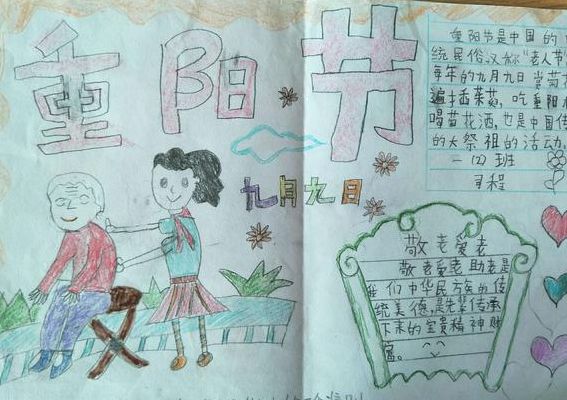 重阳节
九月九日
重阳节是中国的
统民俗,又称"老人节
每年的九月九日赏菊
遍插茱萸,吃重阳
喝菊花酒,也是中国传
的大祭祖的活动,
一(2)班
程
敬老爱老
敬老爱老,助老是
我们中华民族的传
统美德,是先辈传承
下来的宝贵精神财
富。